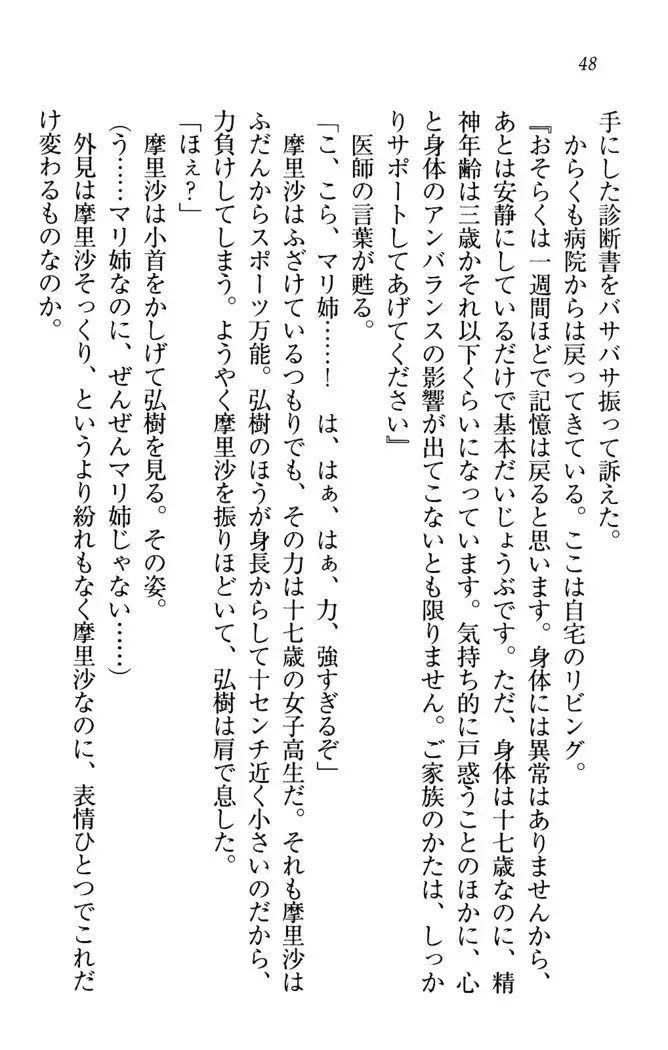 48
手にした診断書をバサバサ振って訴えた。
からくも病院からは戻ってきている。ここは自宅のリビング。
『おそらくは一週間ほどで記憶は戻ると思います。身体には異常はありませんから、
あとは安静にしているだけで基本だいじょうぶです。ただ、身体は十七歳なのに、精
神年齢は三歳かそれ以下くらいになっています。気持ち的に戸惑うことのほかに、心
と身体のアンバランスの影響が出てこないとも限りません。ご家族のかたは、しっか
りサポートしてあげてください』
医師の言葉が甦る。
「こ、こら、マリ姉……！　は、はぁ、はぁ、力、強すぎるぞ」
摩里沙はふざけているつもりでも、その力は十七歳の女子高生だ。それも摩里沙は
ふだんからスポーツ万能。弘樹のほうが身長からして十センチ近く小さいのだから、
力負けしてしまう。ようやく摩里沙を振りほどいて、弘樹は肩で息した。
「ほぇ？」
摩里沙は小首をかしげて弘樹を見る。その姿。
（う……マリ姉なのに、ぜんぜんマリ姉じゃない……）
外見は摩里沙そっくり、というより紛れもなく摩里沙なのに、表情ひとつでこれだ
け変わるものなのか。